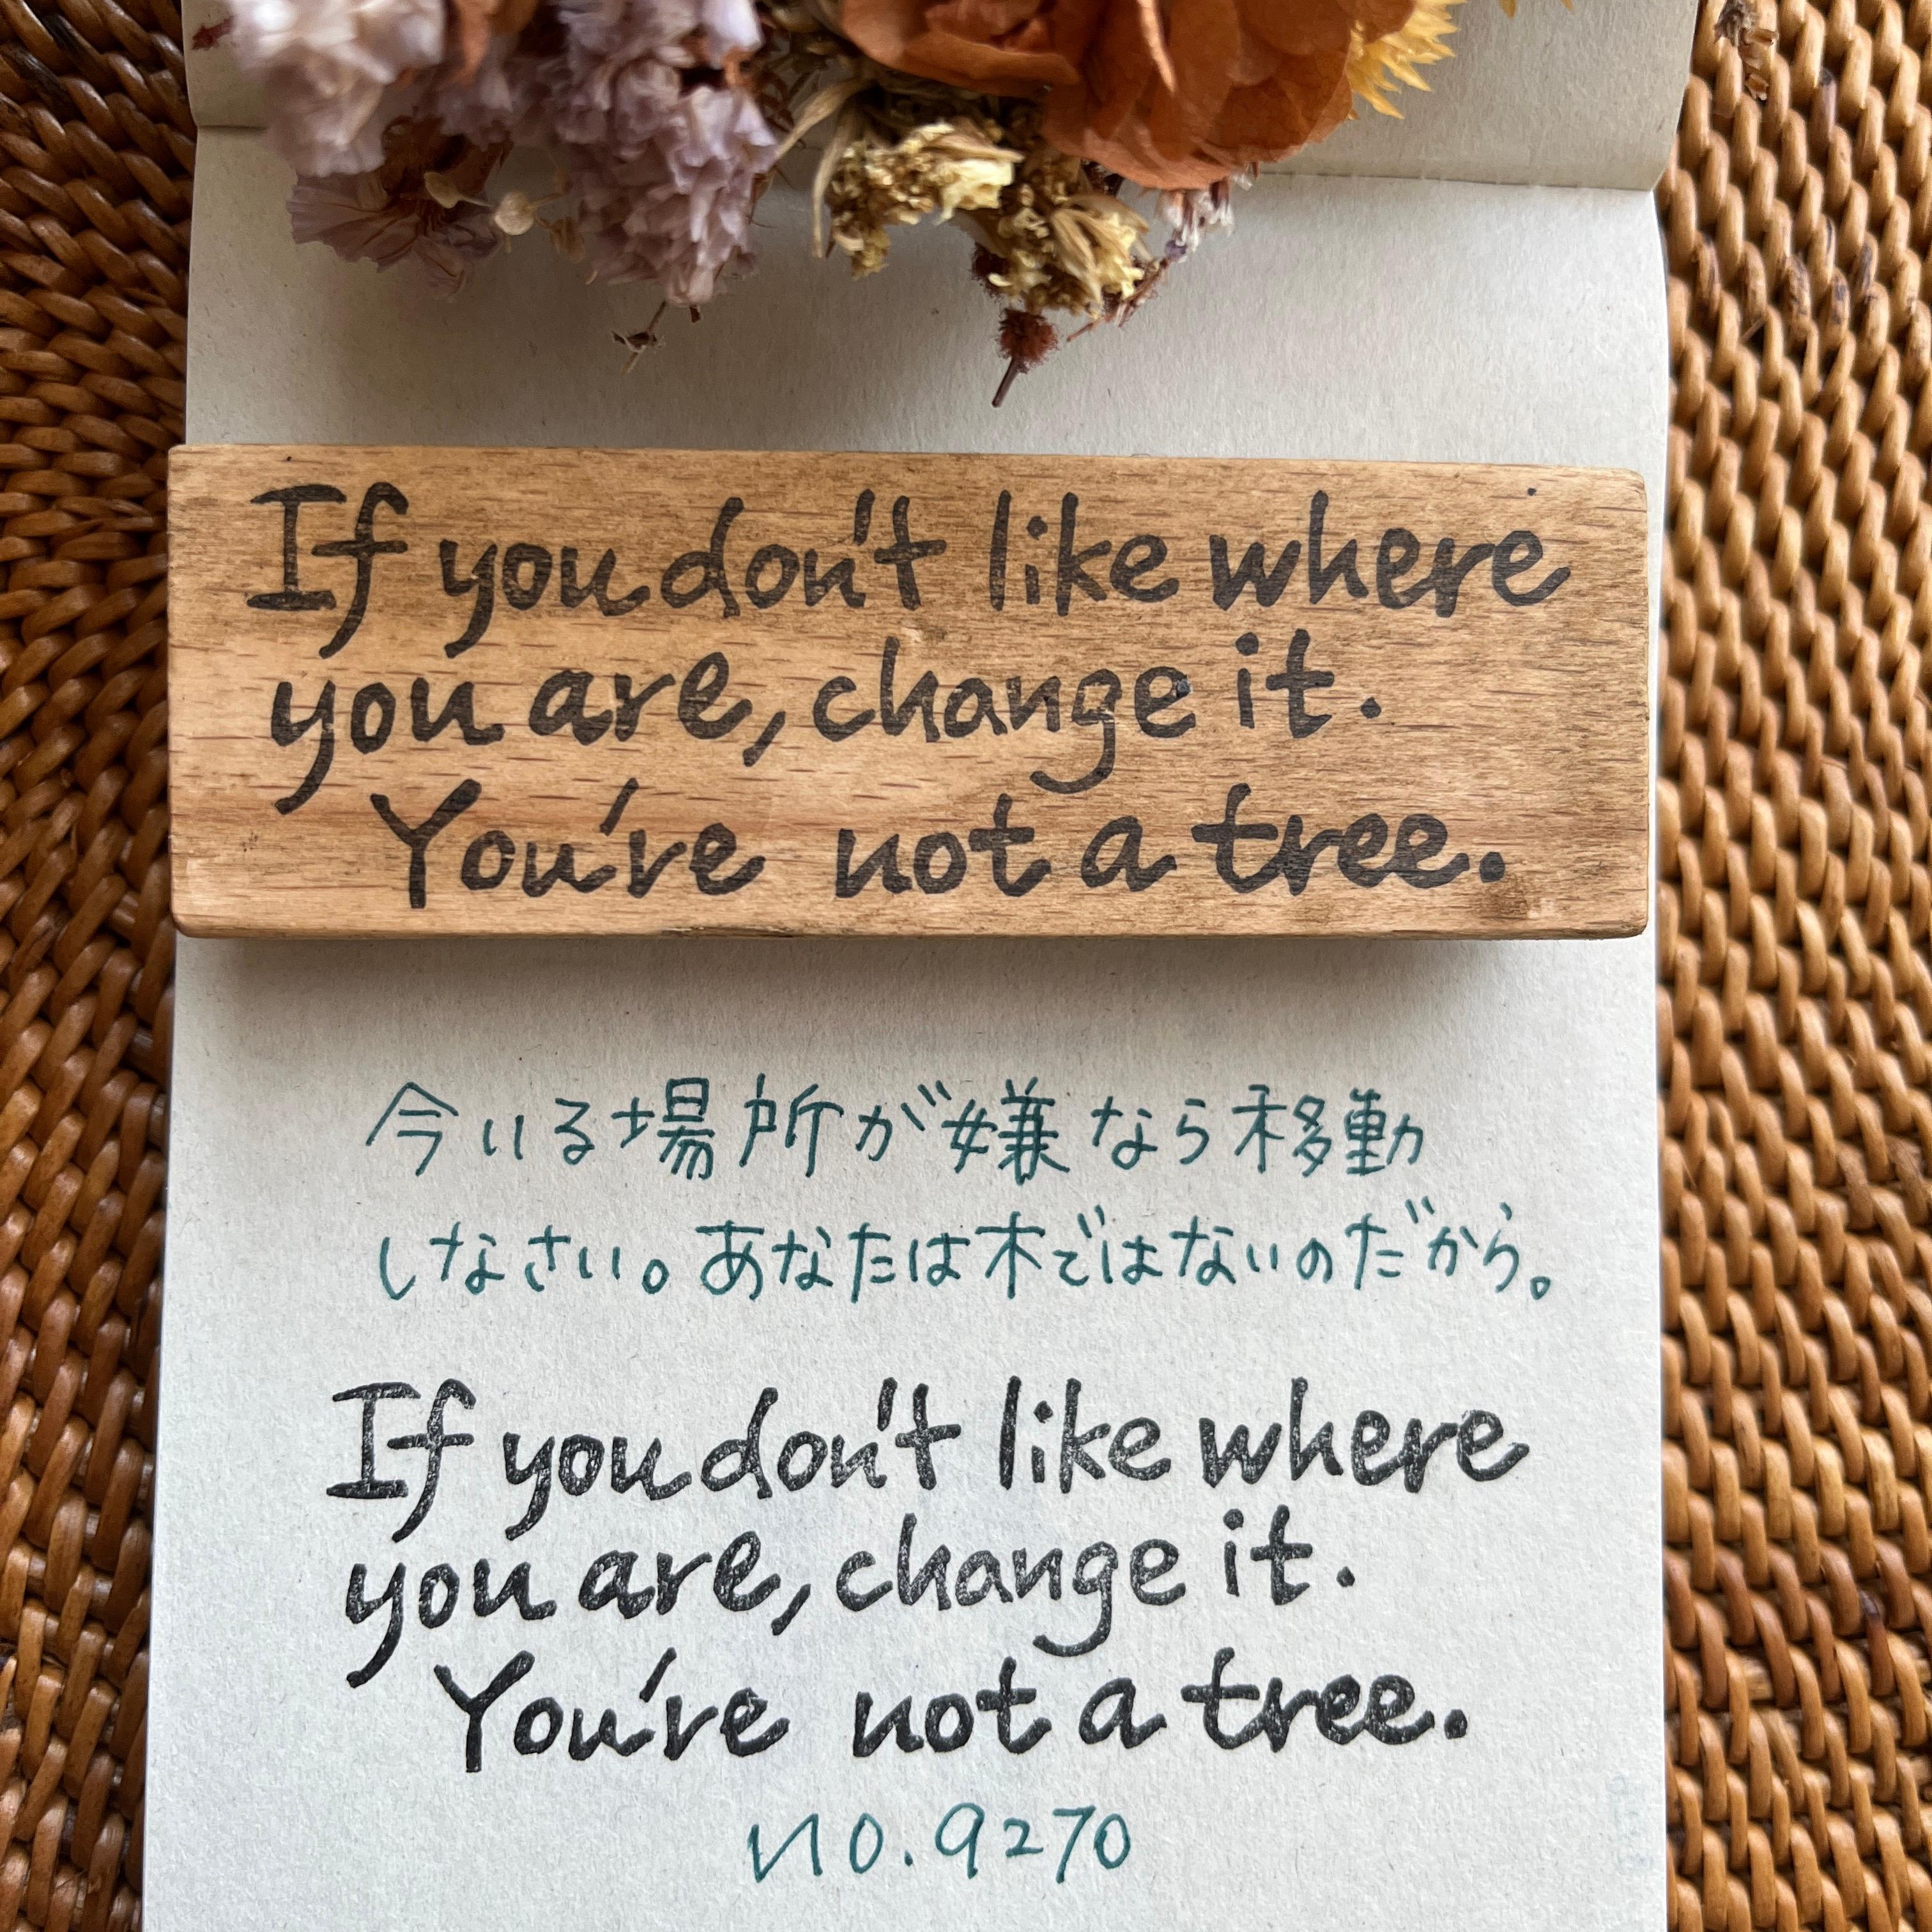 If you don't like where
you are, change it.
You're not a tree.
今いる場所が嫌なら移動
しなさい。あなたは木ではないのだから。
If you don't like where
you are, change it.
You're not a tree.
no.9270